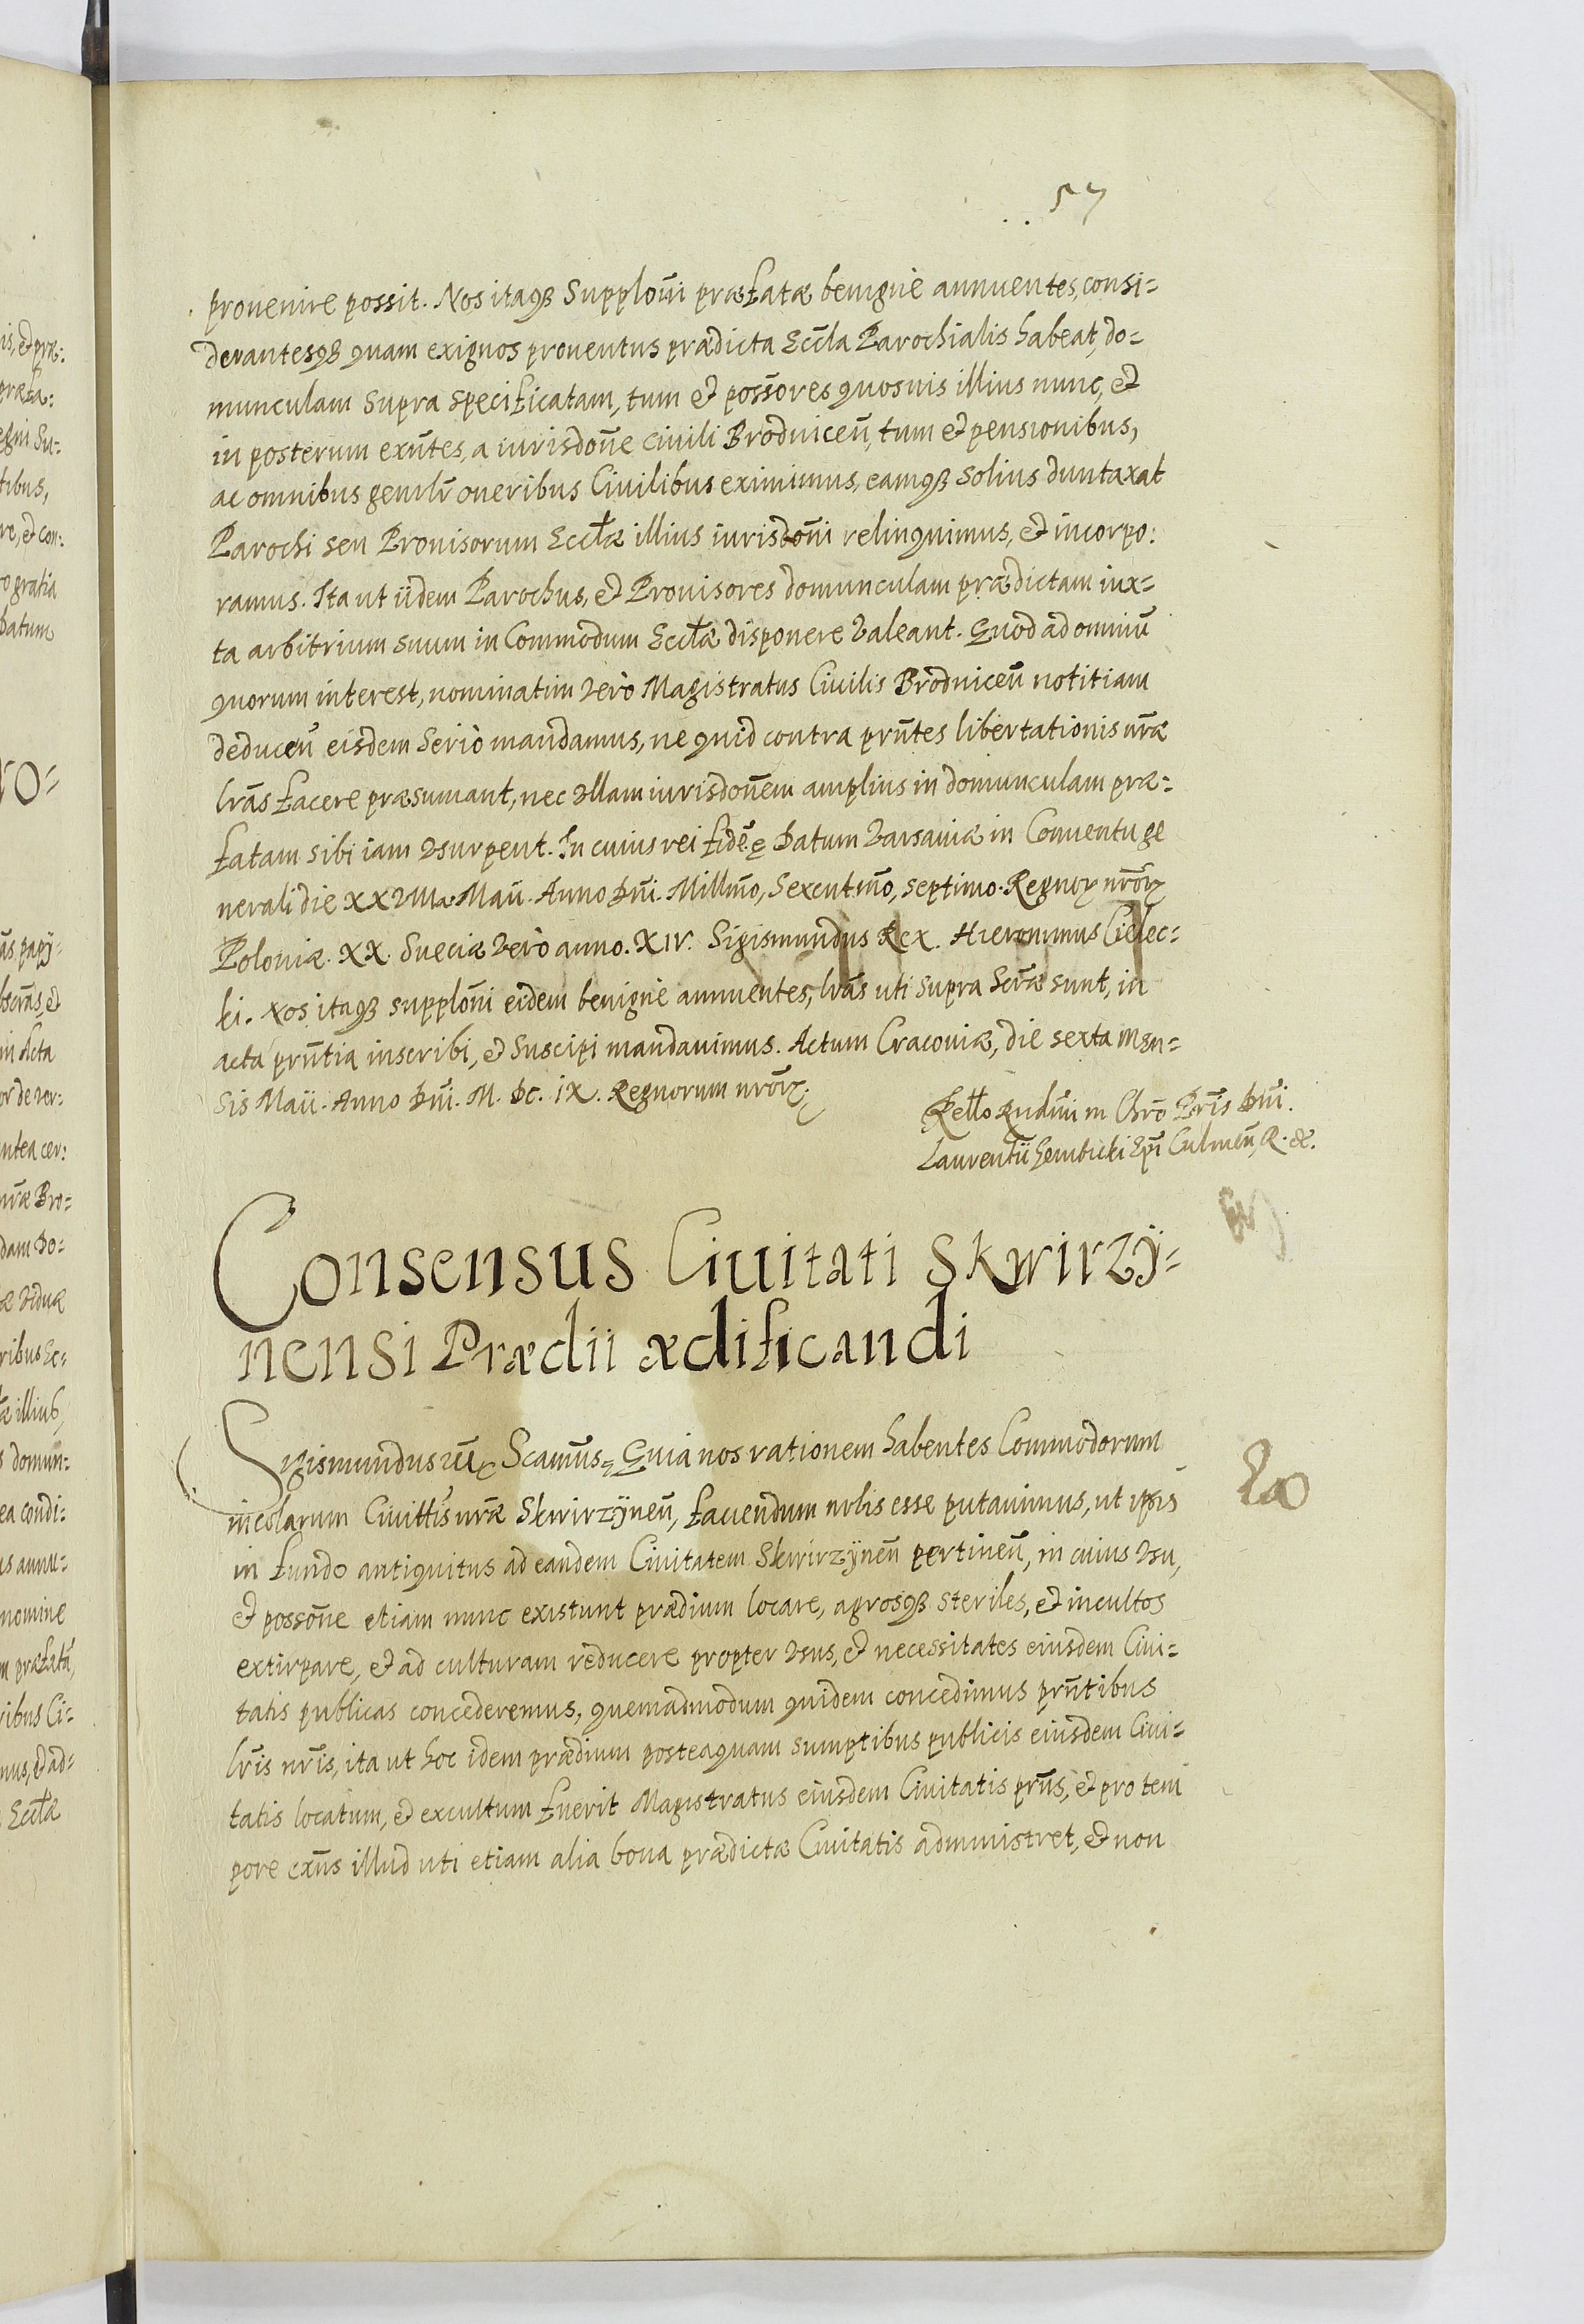 57
prouenire possit. Nos itaqß Supploni̅ præfatæ benigne annuentes, consi=
derantesqß quam exiguos prouentus prædicta Eccl̅a Parochialis habeat, do=
munculam supra specificatam, tum et poss̅ores quosuis illius nunc, et
in posterum exn̅tes, a iurisdon̅e ciuili Brodnicen̅, tum et pensionibus,
ac omnibus genlr̅ oneribus Ciuilibus eximimus, eamqß solius duntaxat
Parochi seu Prouisorum Eccłæ illius iurisdon̅i relinquimus, et incorpo:
ramus. Ita ut iidem Parochus, et Prouisores domunculam prædictam iux=
ta arbitrium suum in Commodum Eccłæ disponere valeant. Quod ad omniu̅
quorum interest, nominatim verò Magistratus Ciuilis Brodnicen̅ notitiam
deducen̅ eisdem seriò mandamus, ne quid contra prn̅tes libertationis nr̅æ
lrās facere præsumant, nec vllam iurisdon̅em amplius in domunculam præ=
fatam sibi iam vsurpent. In cuius rei fide̅. Datum Varsauiæ in Conuentu ge
nerali die XXVIIIa Maii. Anno Dn̅i. Millm̅o, Sexcentm̅o, septimo. Regnoꝝ nr̅oꝝ
Poloniæ. XX. Sueciæ verò anno. XIV. Sigismundus Rex. Hieronimus Cielec=
ki. Nos itaqß supplon̅i eidem benigne annuentes, lrās uti supra Scr̅æ sunt, in
acta prn̅tia inscribi, et suscipi mandauimus. Actum Cracouiæ, die sexta men=
sis Maii. Anno Dn̅i. M. Dc. IX. Regnorum nr̅oꝝ.
Retło Rndm̅i in Chrō Pr̅is Dn̅i.
Laurentii Gembicki Epī Culmen̅, R. &.
Consensus Ciuitati Skwirzÿ=
nensi Prædii ædificandi
Sigismundus III Scamus̅ Quia nos rationem habentes Commodorum
incolarum Ciuittis̅ nr̅æ Skwirzÿnen̅, fauendum nobis esse putauimus, ut ipsis
in fundo antiquitus ad eandem Ciuitatem Skwirzÿnen̅ pertinen̅, in cuius vsu,
et posson̅e etiam nunc existunt prædium locare, agrosqß steriles, et incultos
extirpare, et ad culturam reducere propter vsus, et necessitates eiusdem Ciui=
tatis publicas concederemus, quemadmodum quidem concedimus prn̅tibus
lr̅is nr̅is, ita ut hoc idem prædium posteaquam sumptibus publicis eiusdem Ciui=
tatis locatum, et excultum fuerit Magistratus eiusdem Ciuitatis prn̅s, et pro tem
pore exn̅s illud uti etiam alia bona prædictæ Ciuitatis administret, et non